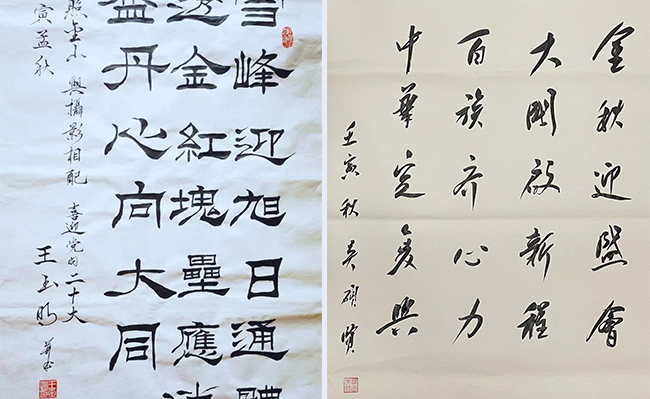 雪峰迎旭日通體
透金紅塊壘應消
盡丹心向大同
照金山 與攝影相配 喜迎党的二十大
寅孟秋
王玉明 并書
金秋迎盛會
大國啟新程
百族齐心力
中華定復興
壬寅秋吴碩賢